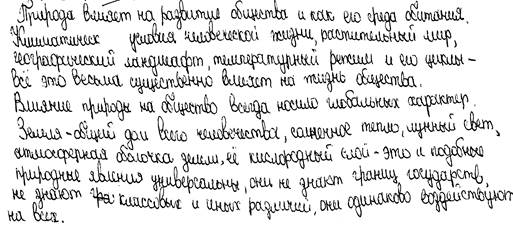 Природа влияет на развитие общества и как его среда обитания.
Климатическ условия человеческой жизни, растительный мир,
географический ландшафт, температурный режим и его циклы -
всё это весьма существенно влияет на жизнь общества.
Влияние природы на общество всегда носило глобальных характер.
Земля - общий дом всего человечества, солнечное тепло, лунный свет,
атмосферная оболочка земли, её кислородный слой - это и подобные
природные явления универсальны, они не знают границ государств,
не знают классовых и иных различий, они одинаково воздействуют
на всех.